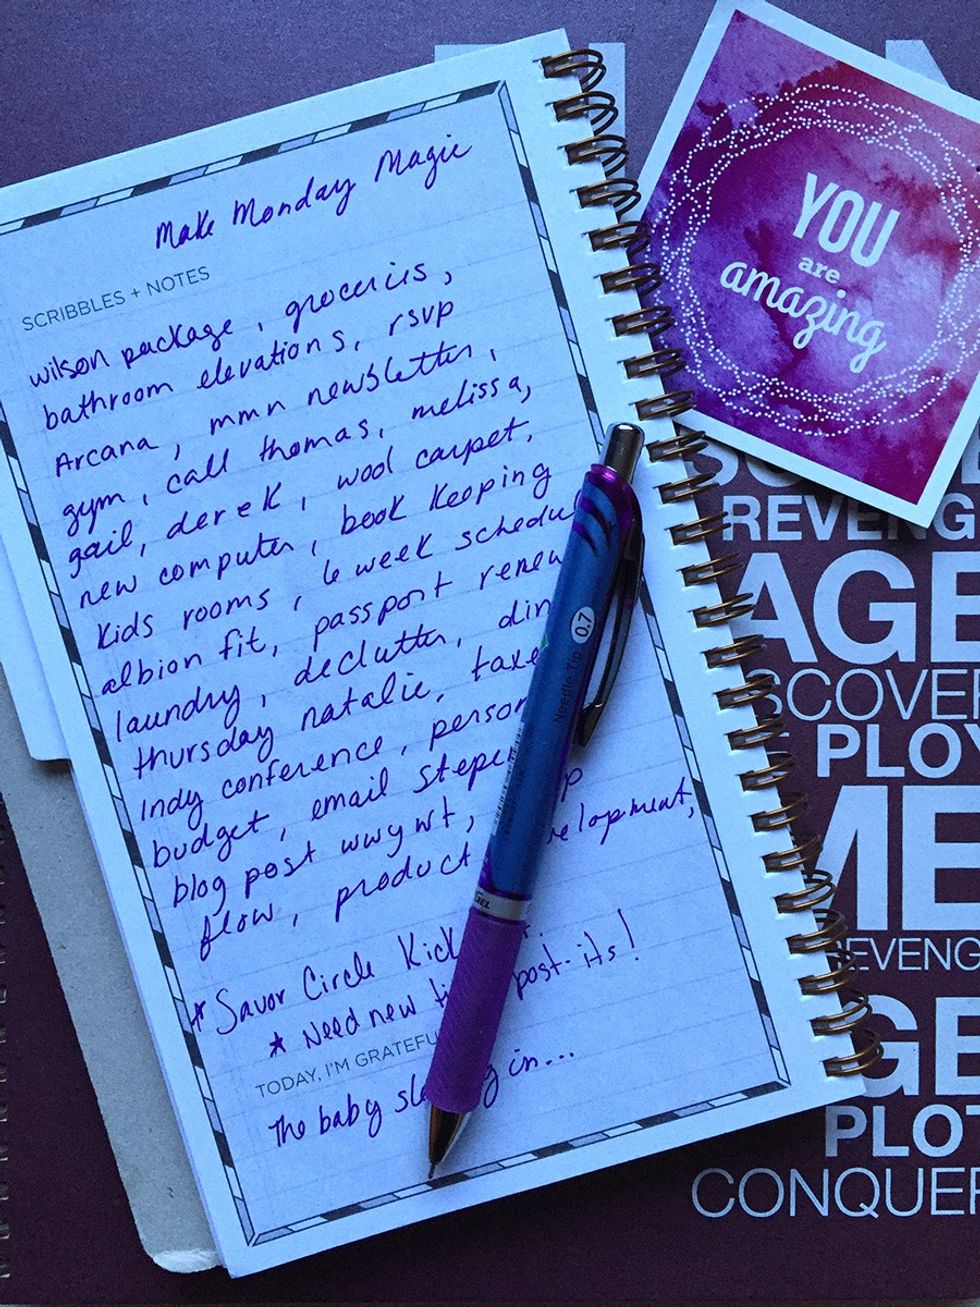 Make Monday Magic
SCRIBBLES + NOTES
wilson package, groceries,
bathroom elevations, rsvp
Arcana, mmn newsletter,
gym, call thomas, melissa,
gail, derek, wool carpet,
new computer, book keeping
kids rooms, 6 week schedu
albion fit, passport renew
laundry, declutter, din
thursday natalie, taxe
Indy conference, person
budget, email stepe
blog post wwywt, p
flow, product velopment,
* Savor Circle Kick
* Need new ti post-its!
TODAY, I'M GRATEFU
The baby sle g in...
YOU
are
amazing
0.7
Needle Tip
REVENG
AGE
SCOVER
PLOY
ME
REVENG
GE
PLOT
CONQUER